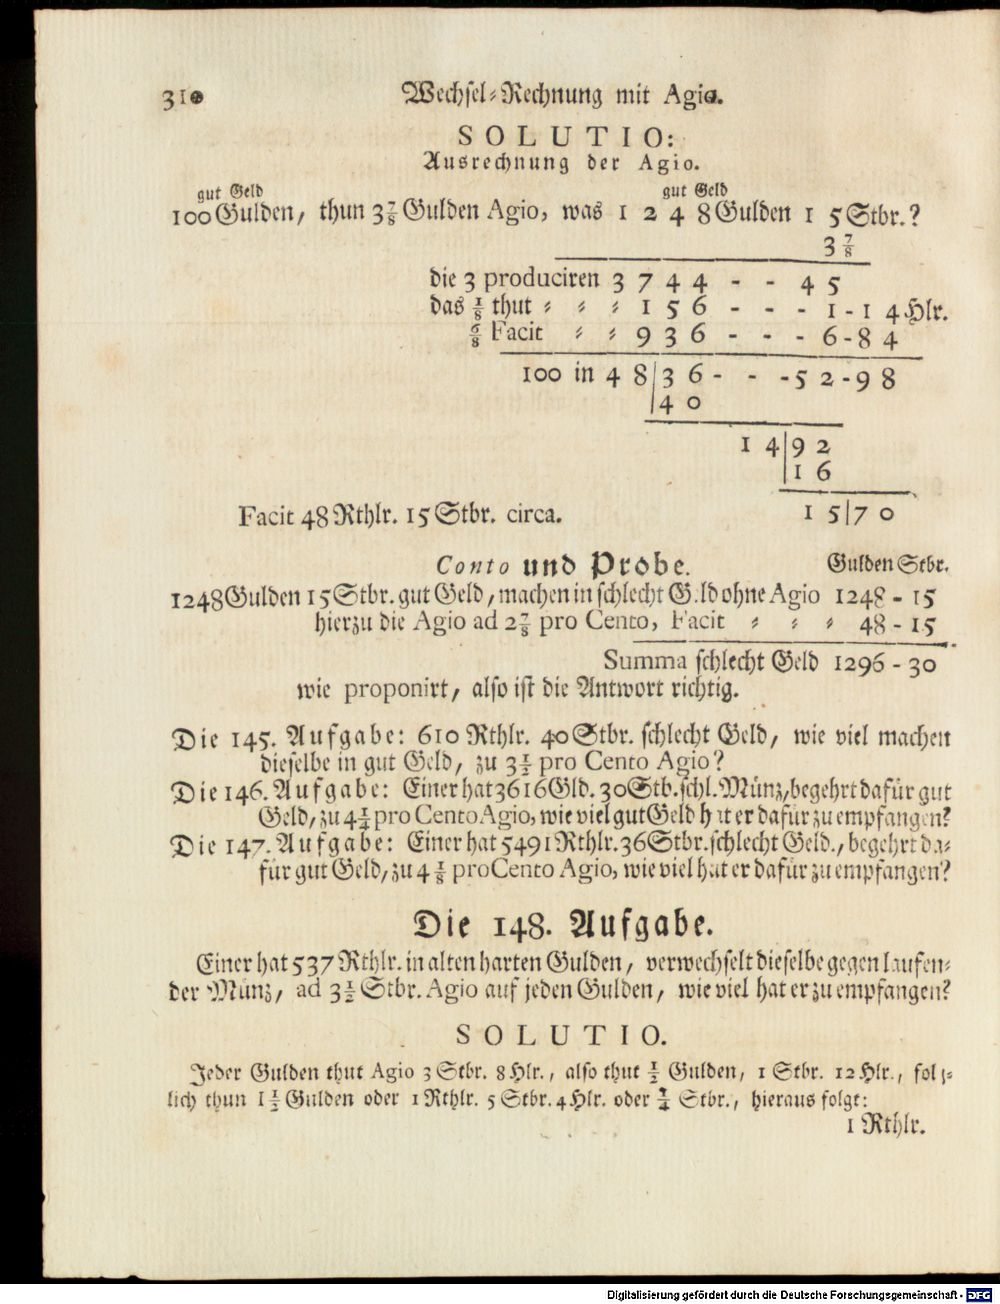 310 Wechsel-Rechnung mit Agio.
SOLUTIO:
Ausrechnung der Agio.
gut Geld gut Geld
100 Gulden, thun 3 7/8 Gulden Agio, was 1 2 4 8 Gulden 1 5 Stbr.?
3 7/8
die 3 produciren 3 7 4 4 - - 4 5
das 1/8 thut = = = 1 5 6 - - - 1 - 1 4 Hlr.
6/8 Facit = = 9 3 6 - - - 6 - 8 4
100 in 4 8|3 6 - - - 5 2 - 9 8
|4 0
1 4|9 2
|1 6
Facit 48 Rthlr. 15 Stbr. circa. 1 5|7 0
Conto und Probe. Gulden Stbr.
1248 Gulden 15 Stbr. gut Geld, machen in schlecht G.ld ohne Agio 1248 - 15
hierzu die Agio ad 2 7/8 pro Cento, Facit = = = 48 - 15
Summa schlecht Geld 1296 - 30
wie proponirt, also ist die Antwort richtig.
Die 145. Aufgabe: 610 Rthlr. 40 Stbr. schlecht Geld, wie viel machen
dieselbe in gut Geld, zu 3 1/2 pro Cento Agio?
Die 146. Aufgabe: Einer hat 3616 Gld. 30 Stb. schl. Münz, begehrt dafür gut
Geld, zu 4 1/4 pro Cento Agio, wie viel gut Geld hat er dafür zu empfangen?
Die 147. Aufgabe: Einer hat 5491 Rthlr. 36 Stbr. schlecht Geld., begehrt da-
für gut Geld, zu 4 1/8 pro Cento Agio, wie viel hat er dafür zu empfangen?
Die 148. Aufgabe.
Einer hat 537 Rthlr. in alten harten Gulden, verwechselt dieselbe gegen laufen-
der Münz, ad 3 1/2 Stbr. Agio auf jeden Gulden, wie viel hat er zu empfangen?
SOLUTIO.
Jeder Gulden thut Agio 3 Stbr. 8 Hlr., also thut 1/2 Gulden, 1 Stbr. 12 Hlr., folg-
lich thun 1 1/2 Gulden oder 1 Rthlr. 5 Stbr. 4 Hlr. oder Stbr., hieraus folgt:
1 Rthlr.
Digitalisierung gefördert durch die Deutsche Forschungsgemeinschaft - DFG